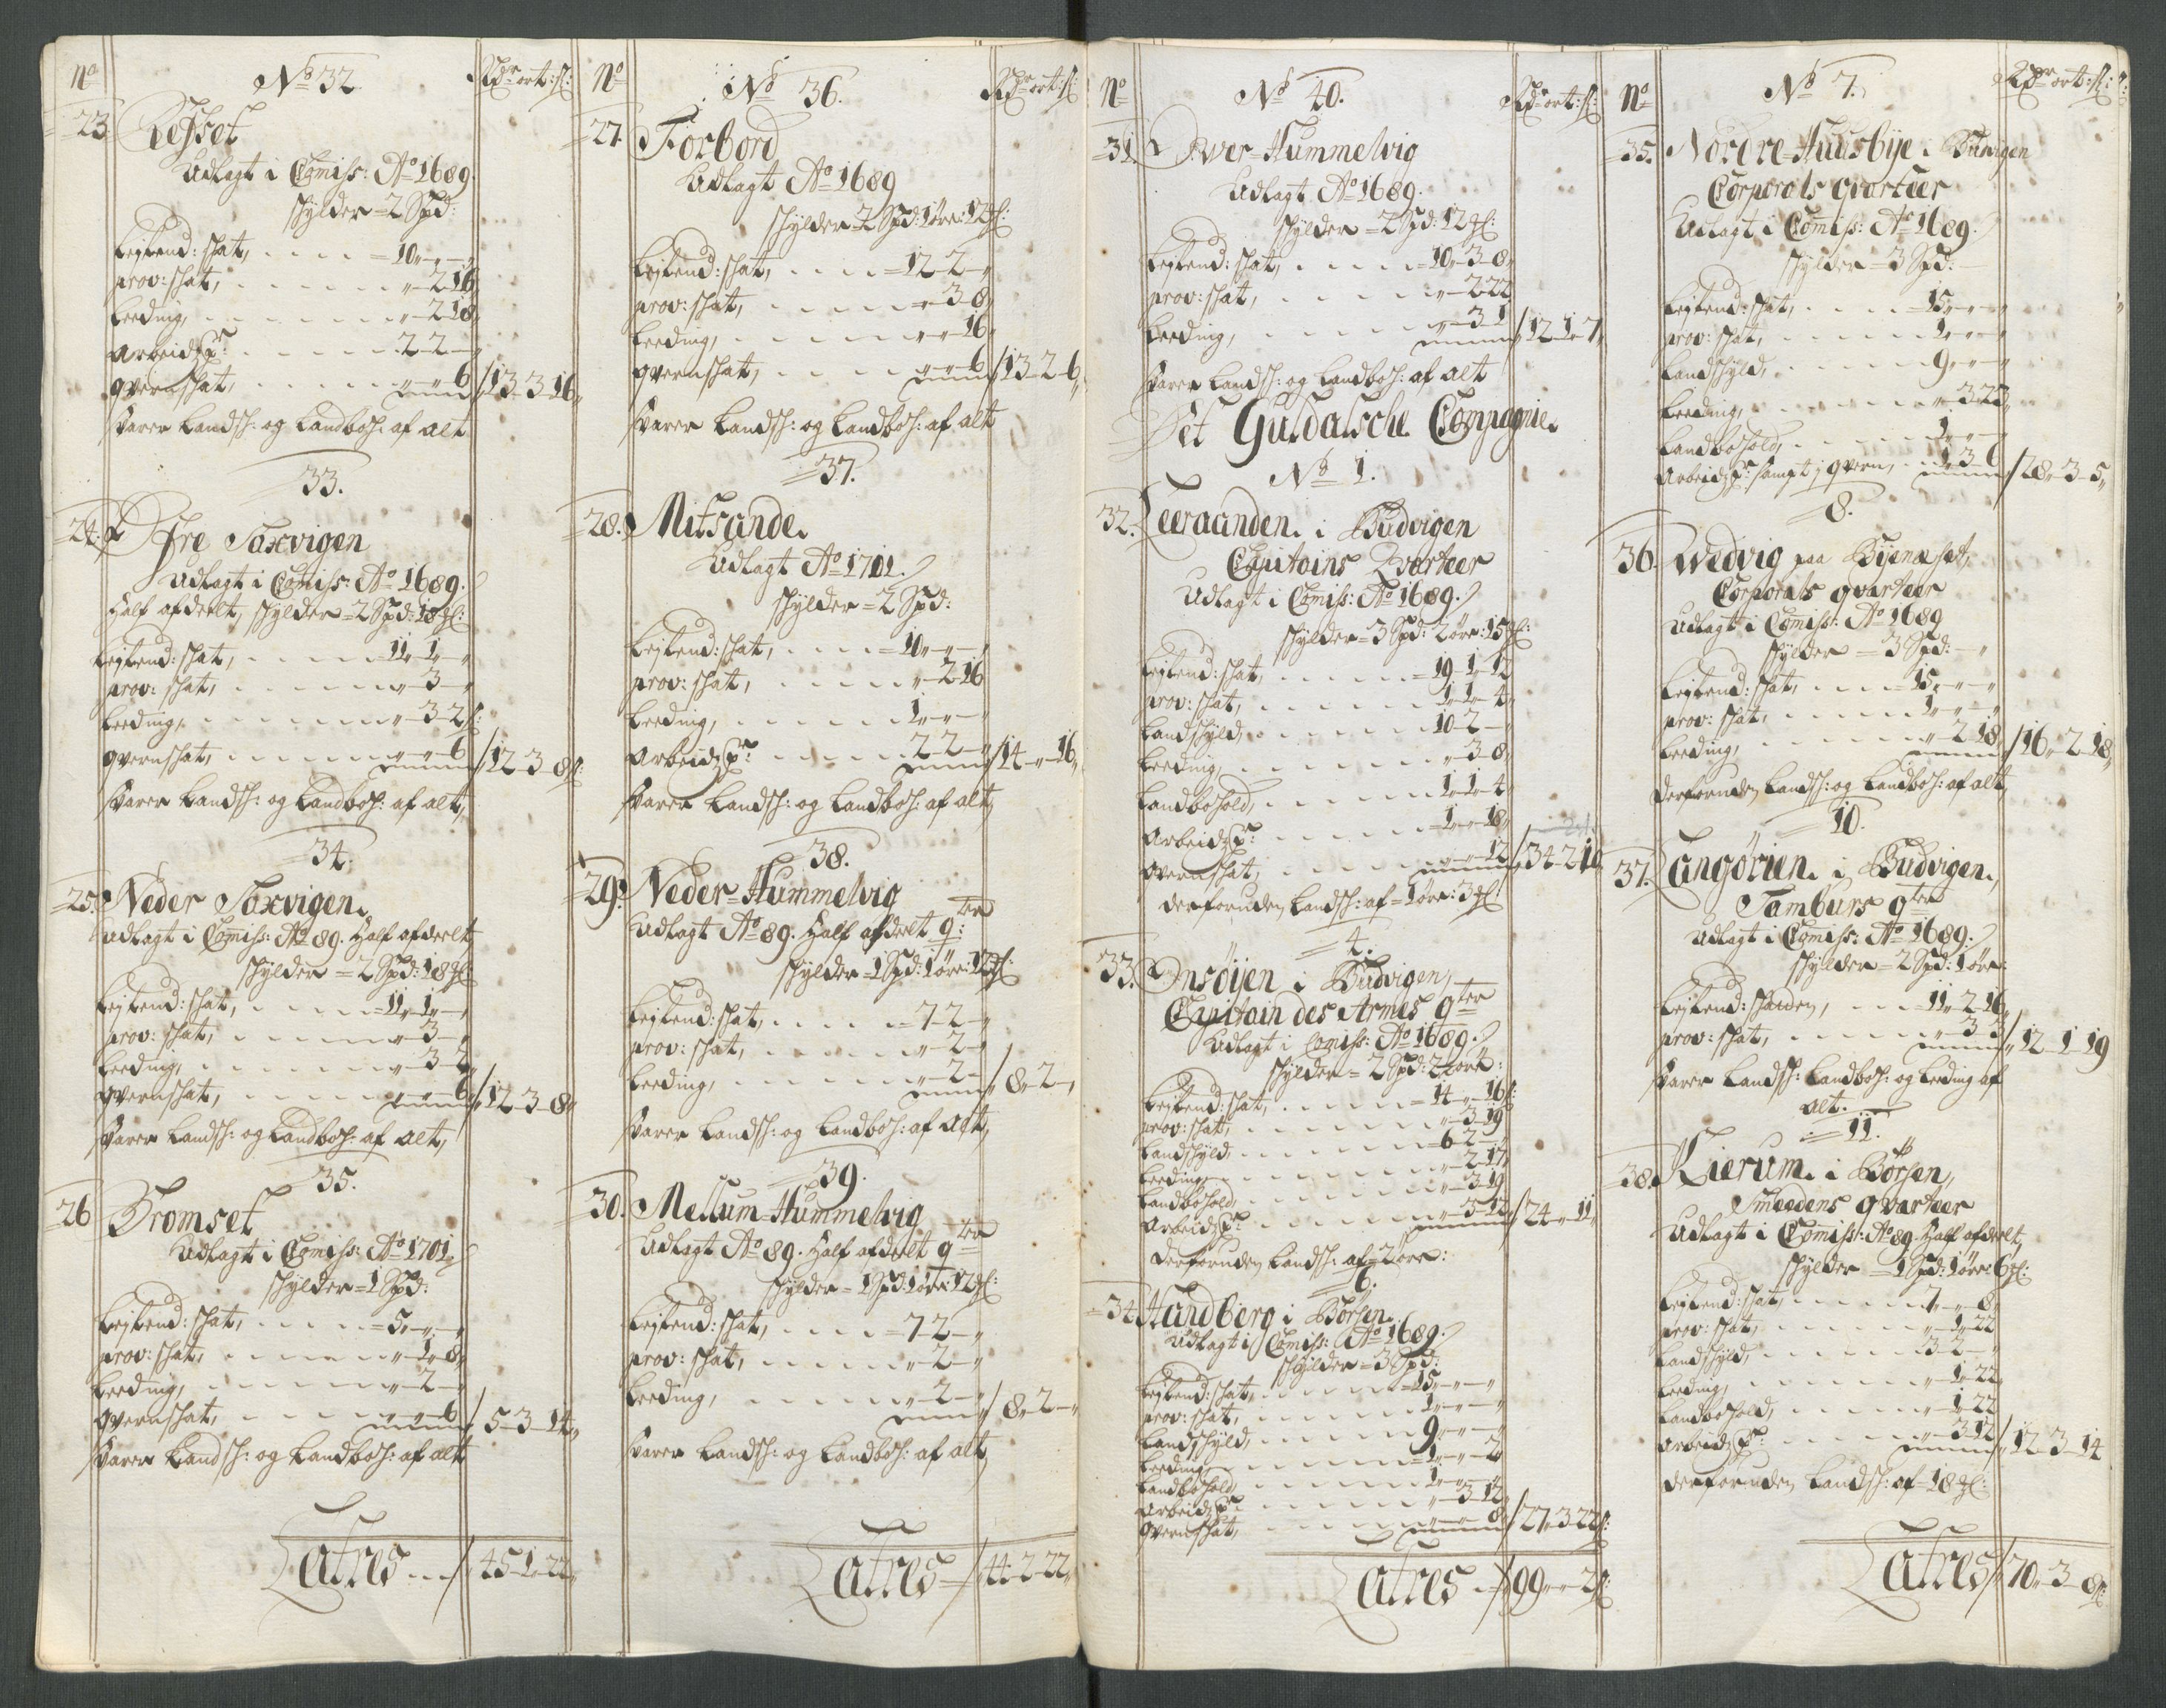 No
No 32
Rdr ort: s:
23
Lejset
Udlagt i Comiss: Ao 1689.
schylder = 2 Spd:
Leylend: schat, . . . = 10 „ - „ - „
prov: schat, . . . „ - 2 - 16
Leeding, . . . „ - 2 - 18
Arbeidzp: . . . 2 - 2 - „
qvernschat, . . . „ - „ - 6 / 13 - 3 - 16
svarer Landsch: og Landboh: af alt
33.
24.
Øfre Saxvigen
Udlagt i Comiss: Ao 1689.
Half afdeelt, schylder = 2 Spd: 18 ML:
Leylend: schat, . . . 11 - 1 - „
prov: schat, . . . „ - 3 - „
Leeding, . . . „ - 3 - 2 s:
qvernschat, . . . „ - „ - 6 / 12 - 3 - 8 s:
svarer Landsch: og Landboh: af alt,
34.
25.
Neder Saxvigen.
Udlagt i Comiss: Ao 89. Half afdeelt
schylder = 2 Spd: 18 ML:
Leylend: schat, . . . = 11 - 1 - „
prov: schat, . . . „ - 3 - „
Leeding, . . . „ - 3 - 2
qvernschat, . . . „ - „ - 6 / 12 - 3 - 8
svarer Landsch: og Landboh: af alt,
35.
26
Bromset
Udlagt i Comiss: Ao 1701
schylder = 1 Spd:
Leylend: schat, . . . = 5 „ - „ - „
prov: schat, . . . „ - 1 - 8
Leeding, . . . „ - 2 - „
qvernschat, . . . „ - „ - 6 / 5 - 3 - 14
svarer Landsch: og Landboh: af alt
Latres . . . / 45 - 1 - 22
No
No 36.
Rdr ort: s:
27
Forbord
Udlagt Ao 1689
schylder = 2 Spd: 1 öre: 12 ML:
Leylend: schat, . . . = 12 - 2 - „
prov: schat, . . . „ - 3 - 8
Leeding, . . . „ - „ - 16
qvernschat, . . . „ - „ - 6 / 13 - 2 - 6
svarer Landsch: og Landboh: af alt
37.
28.
Mitsande.
Udlagt Ao 1701.
schylder = 2 Spd:
Leylend: schat, . . . = 10 „ - „ - „
prov: schat, . . . „ - 2 - 16
Leeding, . . . 1 „ - „ - „
Arbeidzp: . . . 2 - 2 - „ / 14 - „ - 16
svarer Landsch: og Landboh: af alt,
38.
29.
Neder = Hummelvig
Udlagt Ao 89. Half afdeelt qter:
schylder = 1 Spd: 1 öre: 12 ML:
Leylend: schat, . . . = 7 - 2 - „
prov: schat, . . . „ - 2 - „
Leeding, . . . „ - 2 - „ / 8 - 2 - „
svarer Landsch: og Landboh: af alt,
39.
30.
Mellum = Hummelvig
Udlagt Ao 89. Half afdeelt qter
schylder = 1 Spd: 1 öre: 12 ML:
Leylend: schat, . . . = 7 - 2 - „
prov: schat, . . . „ - 2 - „
Leeding, . . . „ - 2 - „ / 8 - 2 - „
svarer Landsch: og Landboh: af alt
Latres = / 44 - 2 - 22
No
No 40.
Rdr ort: s:
31.
Over = Hummelvig
Udlagt Ao 1689.
schylder = 2 Spd: 12 ML:
Leylend: schat, . . . = 10 - 3 - 8
prov: schat, . . . „ - 2 - 22
Leeding, . . . „ - 3 - 1 / 12 - 1 - 7
svarer Landsch: og Landboh: af alt
Det Guldalsche Compagnie.
No 1.
32.
Leeraanden. i Budvigen
Capitains Qvarteer
Udlagt i Comiss: Ao 1689.
schylder = 3 Spd: 2 öre: 15 ML:
Leylend: schat, . . . = 19 - 1 - 12
prov: schat, . . . 1 - 1 - 4
Landschyld, . . . 10 - 2 - „
Leeding, . . . „ - 3 - 8
Landbohold, . . . 1 - 1 - 4
Arbeidzp: . . . = 1 - „ - 18
qvernschat, . . . „ - „ - 12 / 34 - 2 - 10
derforuden Landsch: af = 1 öre: 3 ML
4.
33.
Onsöyen i Budvigen,
Capitain des Armes qter
Udlagt i Comiss: Ao 1689.
schylder = 2 Spd: 2 öre:
Leylend: schat, . . . = 14 - „ - 16 s:
prov: schat, . . . „ - 3 - 19
Landschyld, . . . = 6 - 2 - „
Leeding, . . . „ - 2 - 17
Landbohold, . . . „ - 3 - 19
Arbeidzp: . . . „ - 3 - 12 / 24 - „ - 11
derforuden Landsch: af = 2 öre:
6.
34.
Handberg i Börsen.
Udlagt i Comiss: Ao 1689.
schylder = 3 Spd:
Leylend: schat, . . . = 15 „ - „ - „
prov: schat, . . . 1 „ - „ - „
Landschyld, . . . 9 „ - „ - „
Leeding, . . . = 1 „ - „ - 2
Landbohold, . . . 1 „ - „ - „
Arbeidzp: . . . „ - 3 - 12
qvernschat, . . . „ - „ - 8 / 27 - 3 - 22 s:
Latres . / 99 „ - „ - 2 s:
No
No 7.
Rdr ort: s:
35.
Nordre = Huusbye i Buvigen
Corporals qvarteer
Udlagt i Comiss: Ao 1689.
schylder = 3 Spd:
Leylend: schat, . . . 15 „ - „ - „
prov: schat, . . . 1 „ - „ - „
Landschyld, . . . 9 „ - „ - „
Leeding, . . . „ - 3 - 23
Landbohold, . . . 1 „ - „ - „
Arbeidzp: sampt qvern, . . 1 - 3 - 6 / 28 - 3 - 5
8.
36.
Wedvig paa Byenesset,
Corporals qvarteer
Udlagt i Comiss: Ao 1689
schylder = 3 Spd: - „
Leylend: schat, . . . = 15 „ - „ - „
prov: schat, . . . 1 „ - „ - „
Leeding, . . . „ - 2 - 18 / 16 - 2 - 18
derforuden Landsch: og Landboh: af alt,
10.
37.
Langörien. i Budvigen.
Tamburs qter
Udlagt i Comiss: Ao 1689.
schylder = 2 Spd: 1 öre:
Leylend: schatten, . . . = 11 - 2 - 16
prov: schat, . . . „ - 3 - 3 / 12 - 1 - 19
svarer Landsch: Landboh: og Leding af
alt.
11.
38.
Kierum. i Börsen,
Smeedens qvarteer
Udlagt i Comiss: Ao 89. Half afdeelt,
schylder = 1 Spd: 1 öre: 6 ML:
Leylend: schat, . . . 7 „ - „ - 8
prov: schat, . . . „ - 1 - 22
Landschyld, . . . 3 - 2 - „
Leeding, . . . „ - 1 - 22
Landbohold, . . . „ - 1 - 22
Arbeidzp: . . . „ - 3 - 12 / 12 - 3 - 14
derforuden Landsch: af = 18 ML:
Latres / 70 - 3 - 8 s: